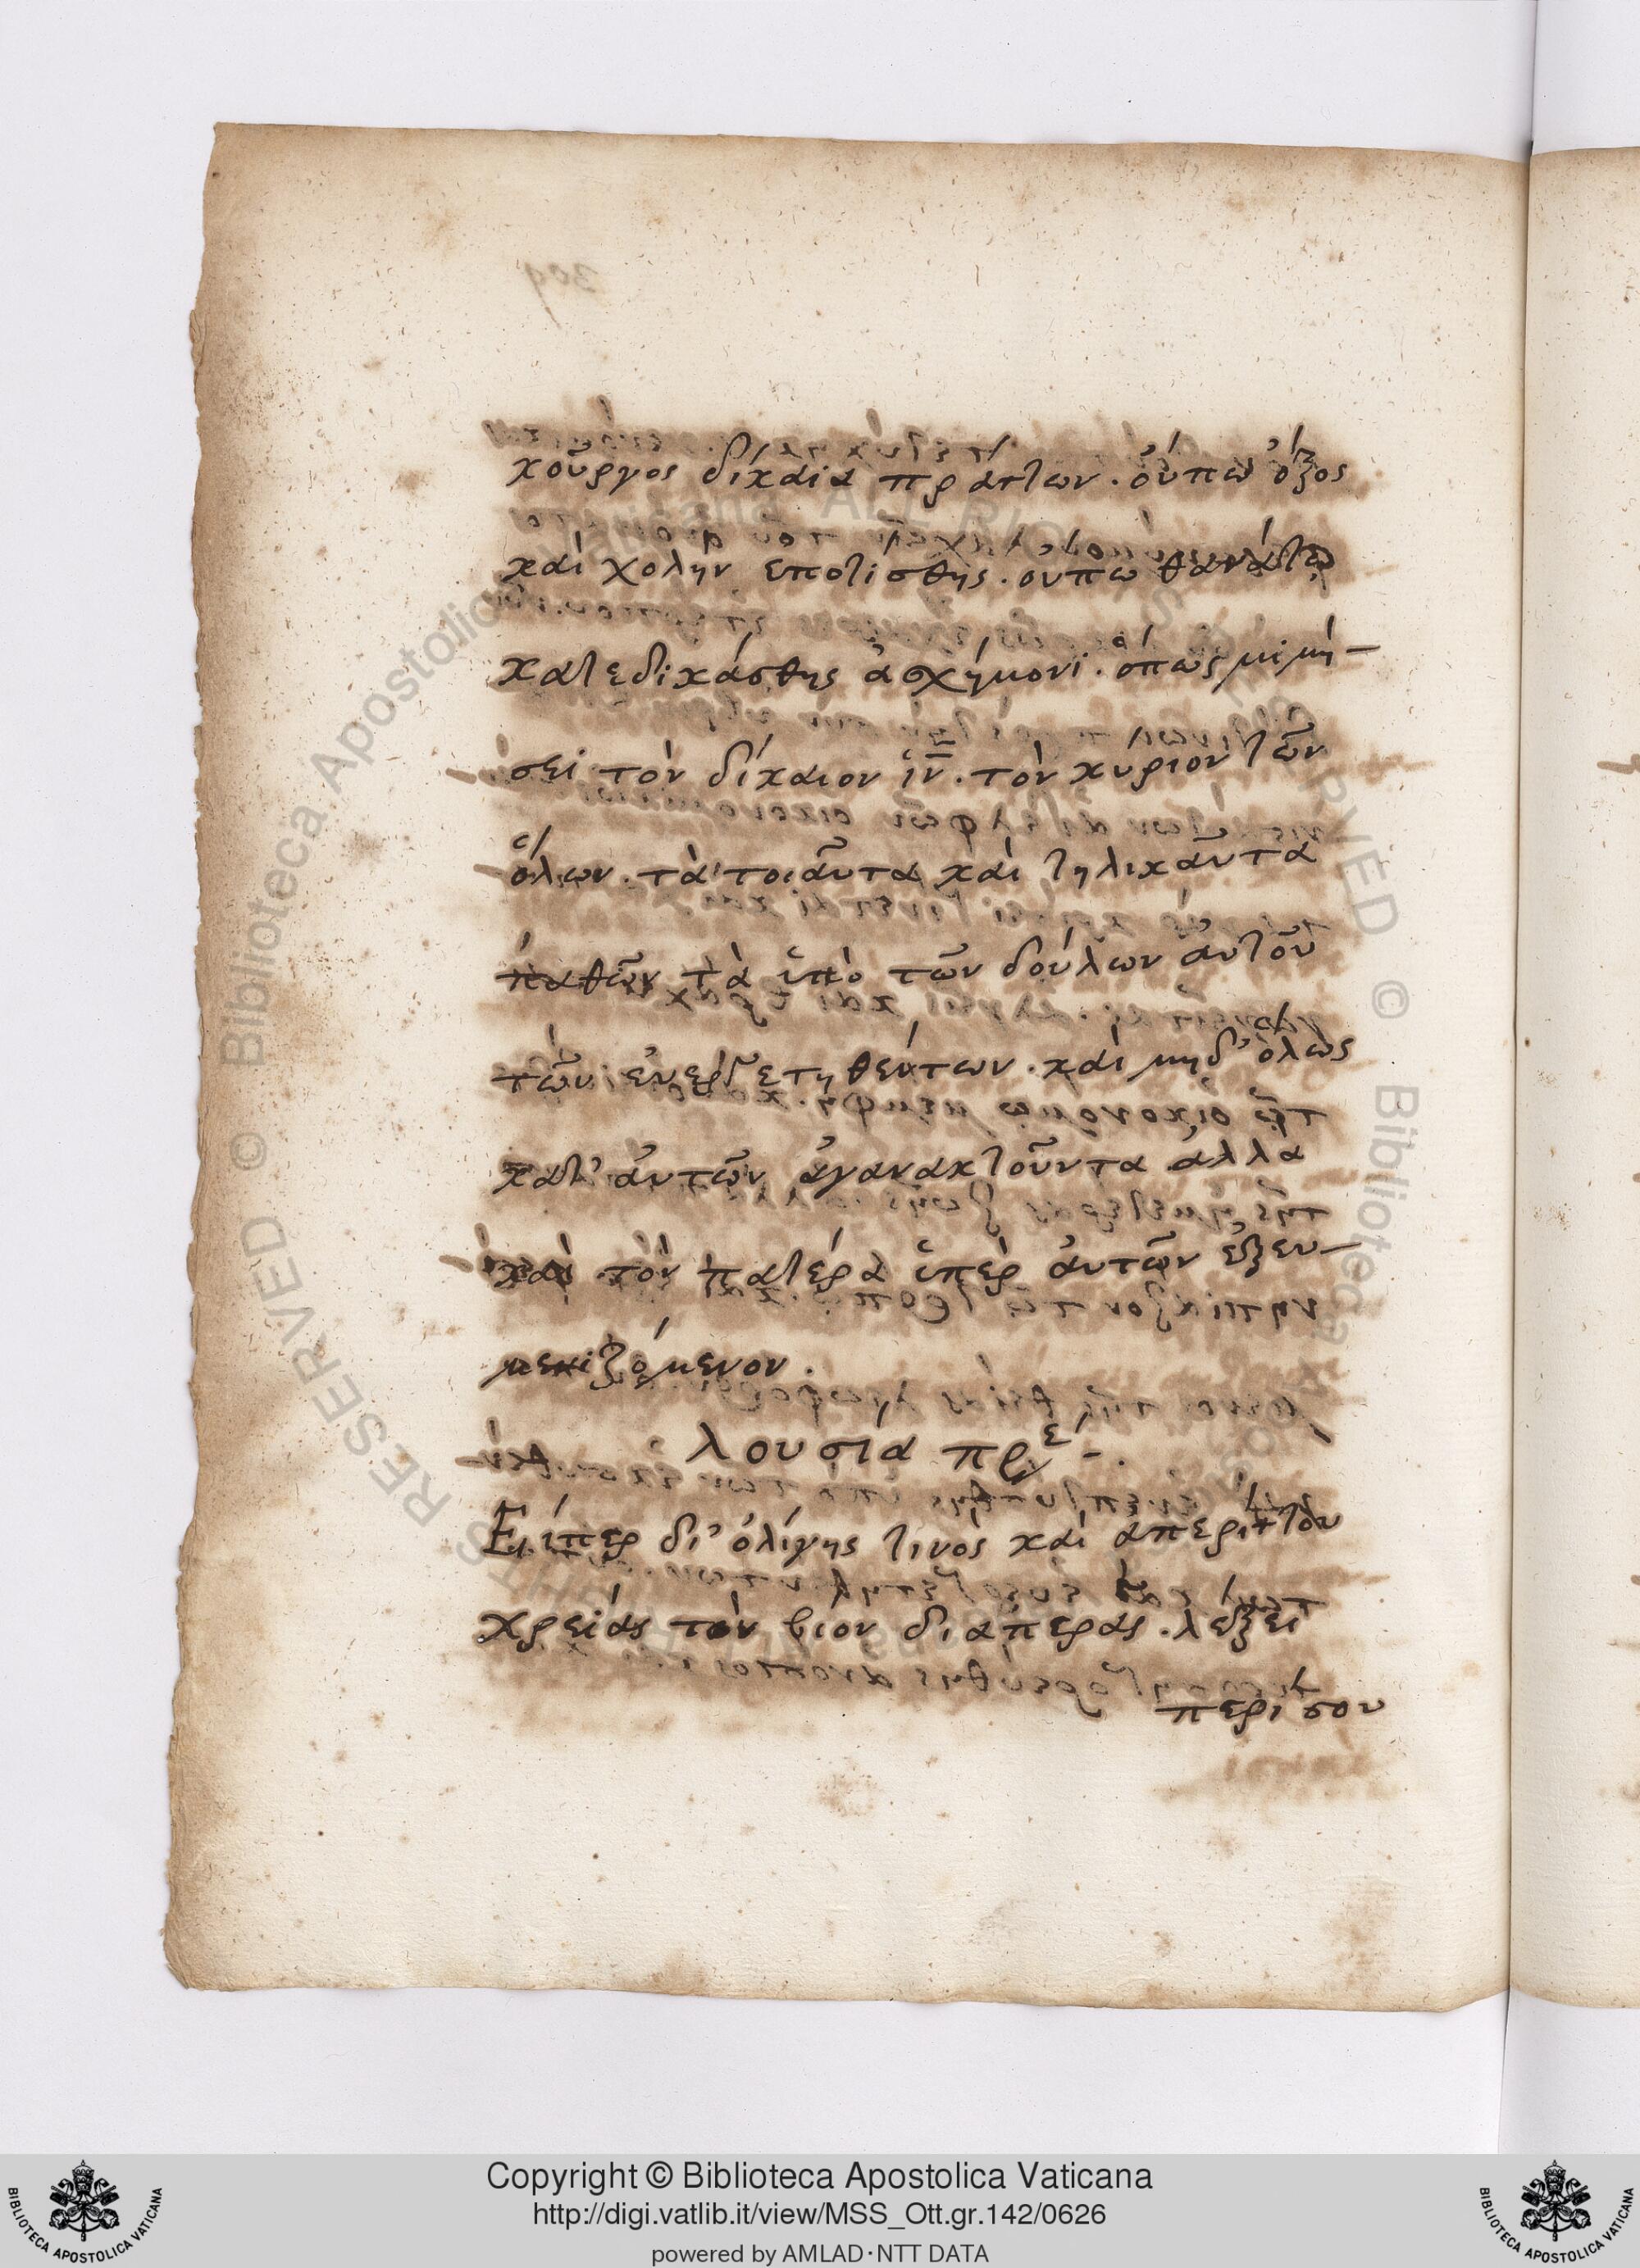 κοῦργος δίκαια πράττων. οὔπω ὄξος
καὶ χολὴν ἐποτίσθης. οὔπω θανάτῳ
κατεδικάσθης ἀσχήμονι. ὅπως μιμή-
σει τὸν δίκαιον ἰν̅. τὸν κύριον τῶν
ὅλων. τὰ τοιαῦτα καὶ τηλικαῦτα
παθῶν τὰ ὑπὸ τῶν δούλων αὐτοῦ
τῶν εὐεργετηθέντων. καὶ μηδ' ὅλως
κατ' αὐτῶν ἀγανακτοῦντα ἀλλὰ
καὶ τὸν πατέρα ὑπὲρ αὐτῶν ἐξευ-
μενιζόμενον.
λουσία πρε
Εἴπερ δι' ὀλίγης τινὸς καὶ ἀπερίττου
χρείας τὸν βίον διαπερᾷς. λέξει
περὶ σου
Copyright © Biblioteca Apostolica Vaticana
http://digi.vatlib.it/view/MSS_Ott.gr.142/0626
powered by AMLAD·NTT DATA